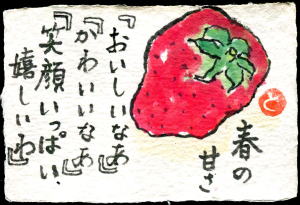 春の
甘さ
『おいしいなあ』
『かわいいなあ』
『笑顔いっぱい、
嬉しいわ』